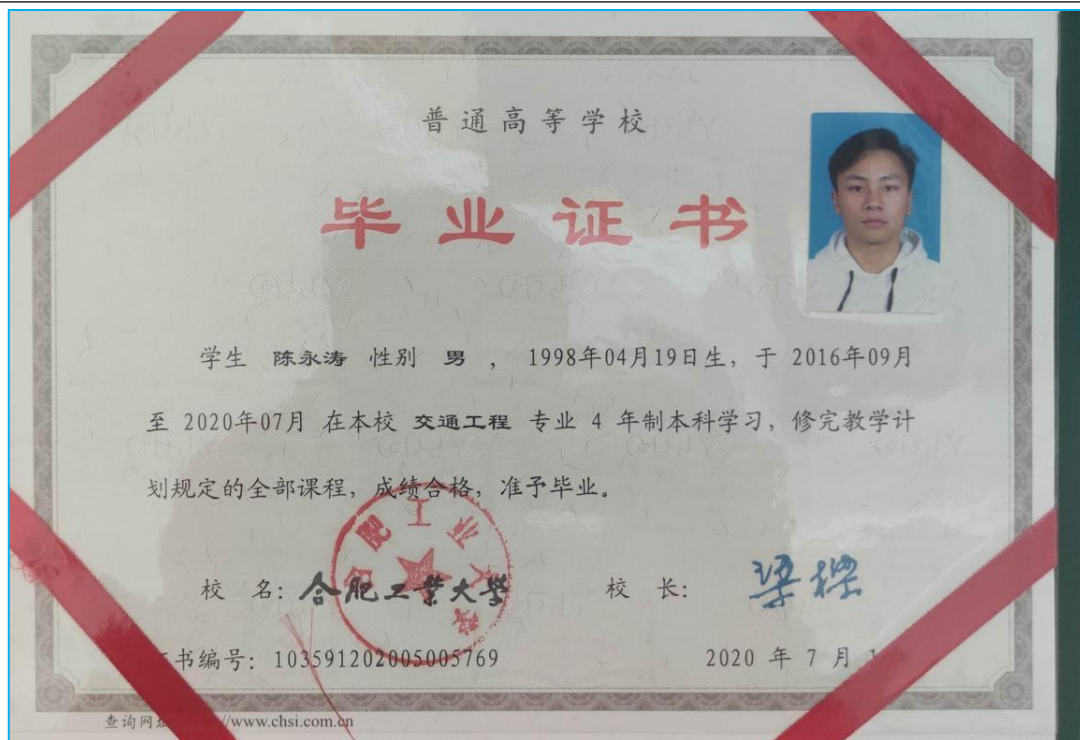 普通高等学校
毕业证书
学生 陈永涛 性别 男 , 1998年04月19日生, 于 2016年09月
至 2020年07月 在本校 交通工程 专业 4 年制本科学习, 修完教学计
划规定的全部课程, 成绩合格, 准予毕业。
合肥工业大学
校 名: 合肥工业大学 校 长: 梁樑
书编号: 103591202005005769 2020 年 7 月
查询网 //www.chsi.com.cn